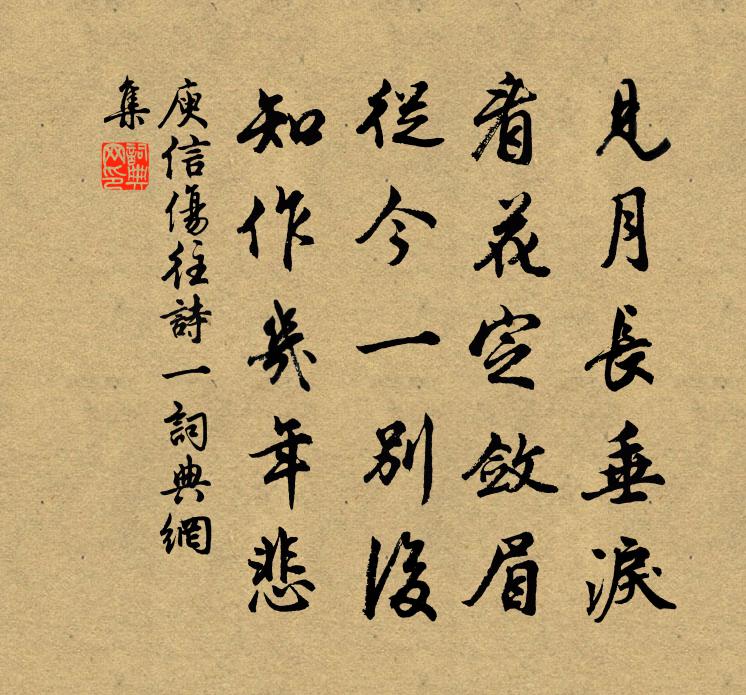 見月長垂淚
看花定斂眉
從今一別後
知作幾年悲
庾信傷往詩一詞典網
集
詞典
网印